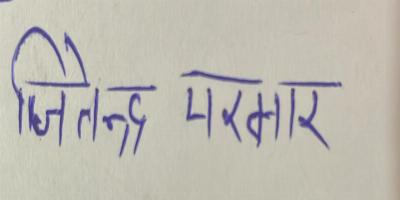 जितेन्द्र परमार